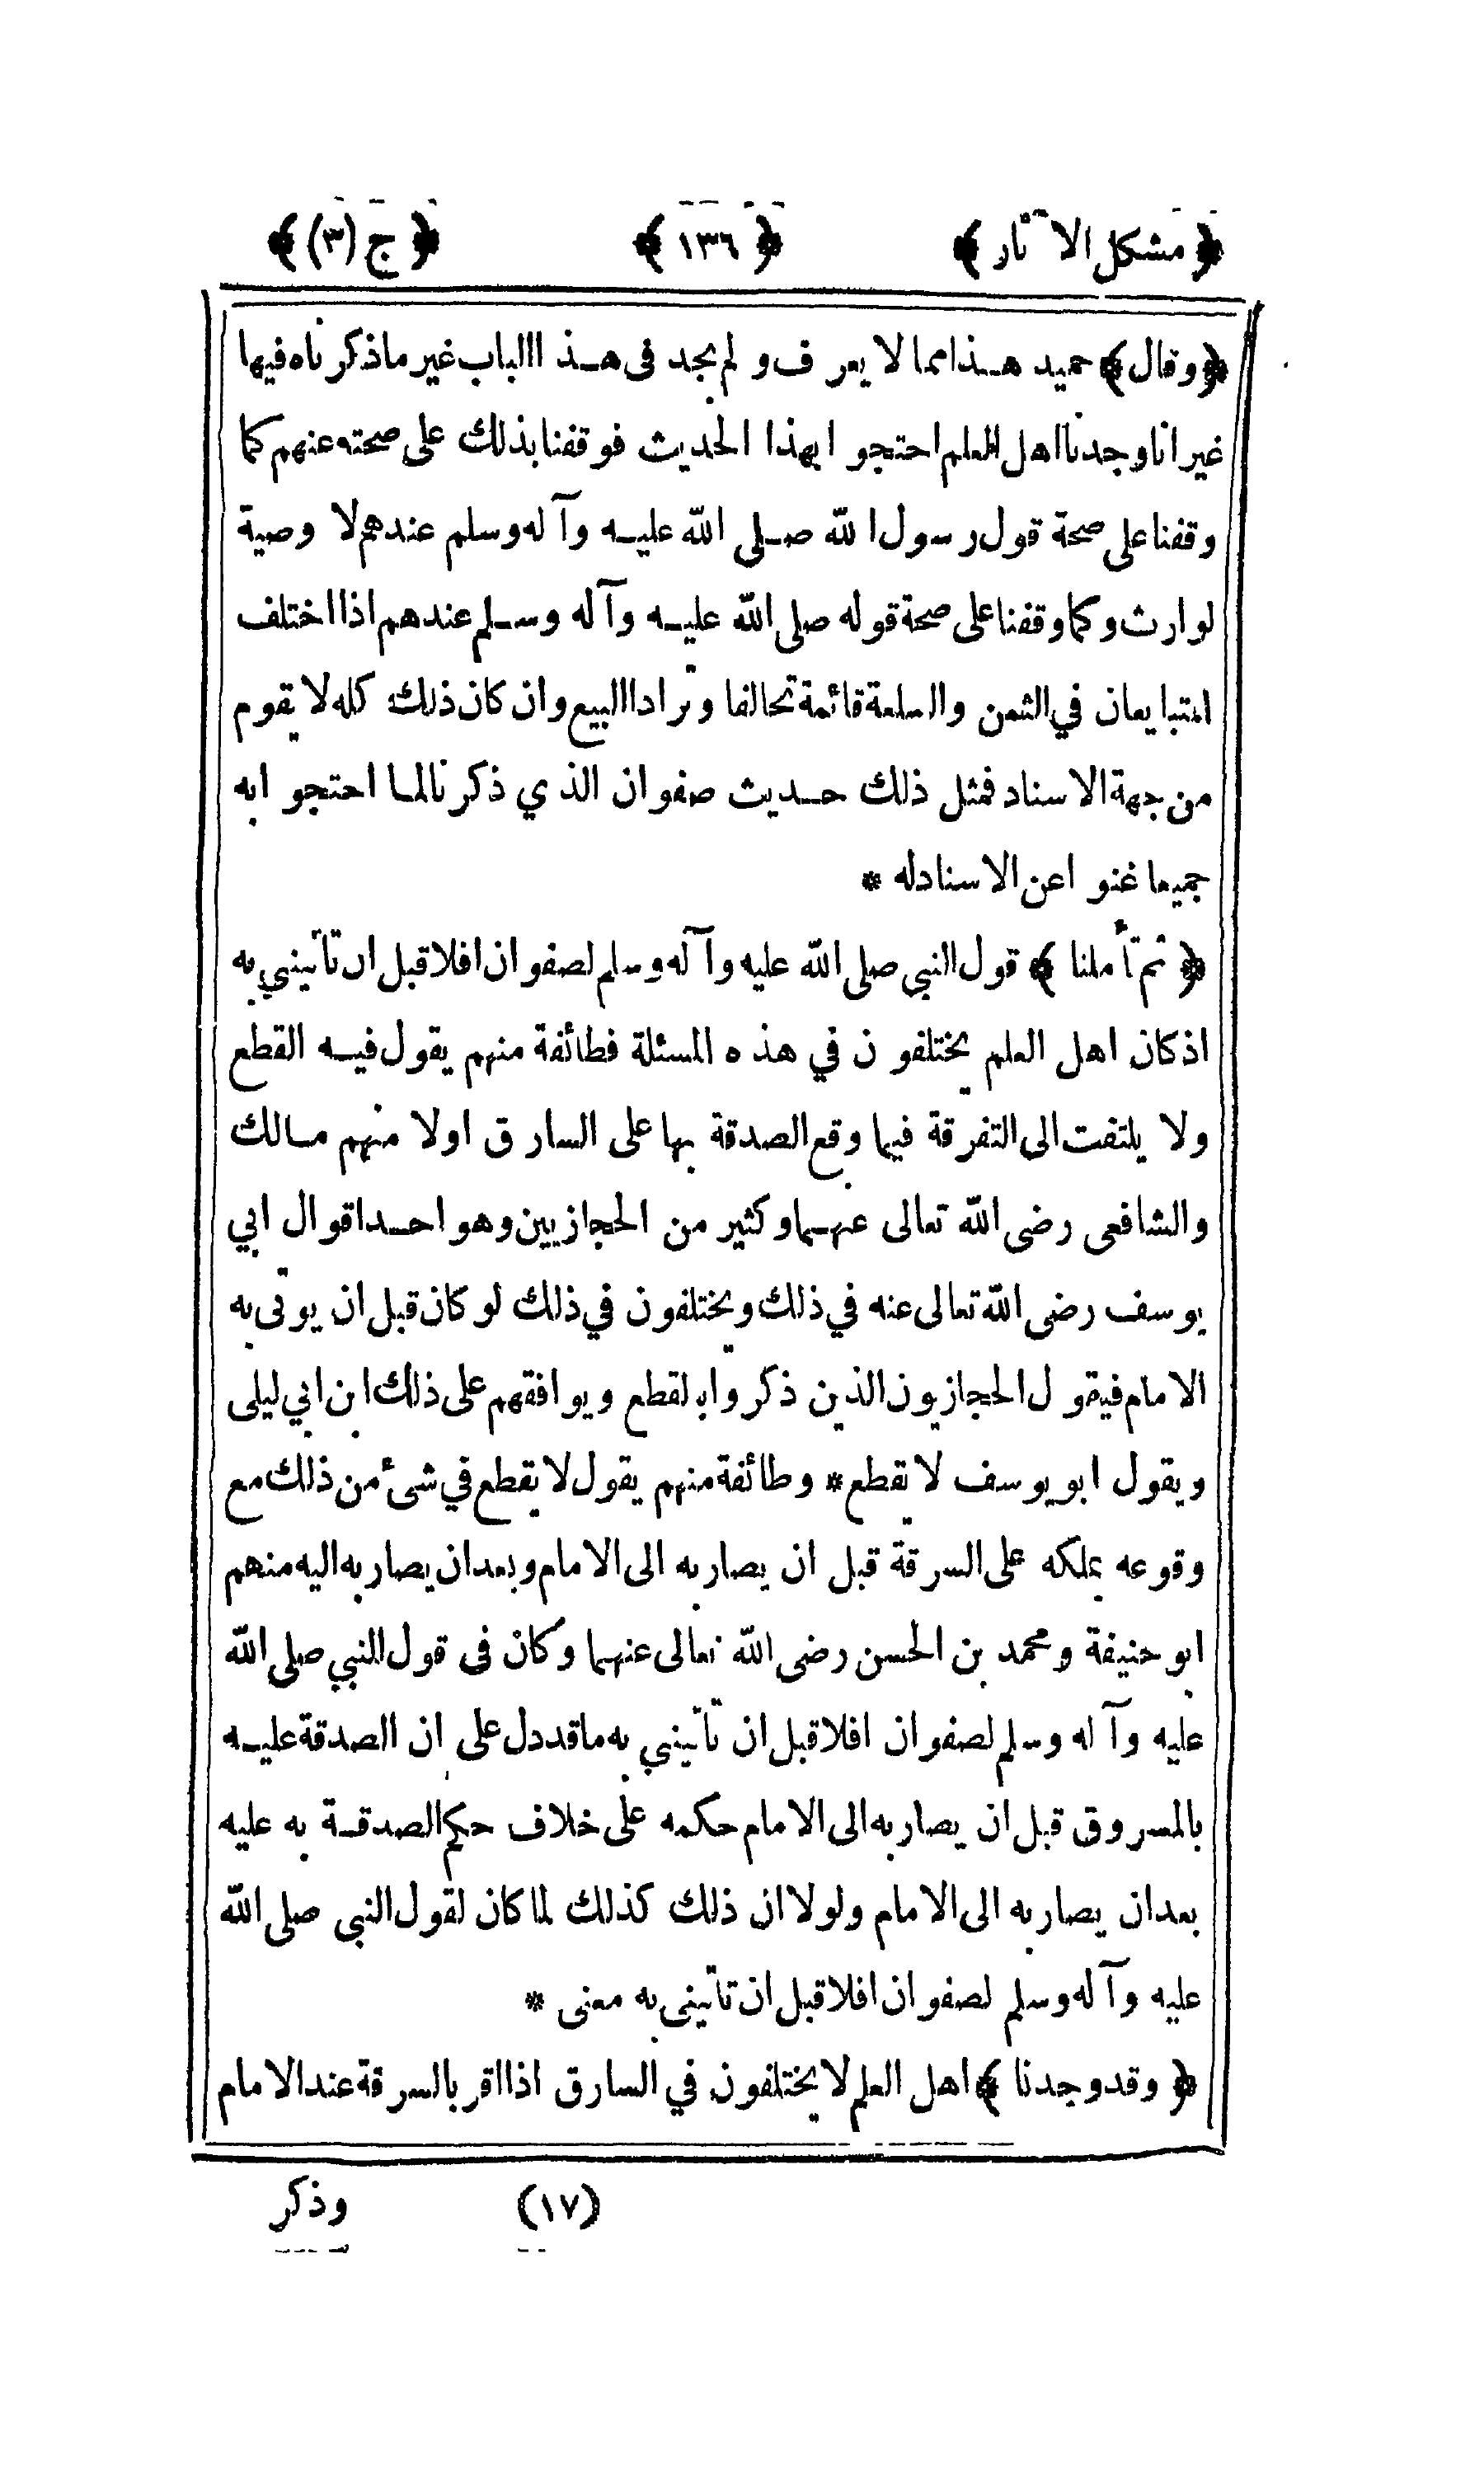 ﴿ مشكل الآثار ﴾ ﴿ ١٣٦ ﴾ ﴿ ج (٣) ﴾
﴿ وقال ﴾ حميد هذا مما لا يعرف ولم نجد فى هذا الباب غير ما ذكرناه فيها
غير انا وجدنا اهل العلم احتجوا بهذا الحديث فوقفنا بذلك على صحته عنهم كما
وقفنا على صحة قول رسول الله صلى الله عليه وآله وسلم عندهم لا وصية
لوارث وكما وقفنا على صحة قوله صلى الله عليه وآله وسلم عندهم اذا اختلف
المتبايعان في الثمن والسلعة قائمة تحالفا وترادا البيع وان كان ذلك كله لا يقوم
من جهة الاسناد فمثل ذلك حديث صفوان الذي ذكرنا لما احتجوا به
جميعا غنوا عن الاسناد له *
﴿ ثم تأملنا ﴾ قول النبي صلى الله عليه وآله وسلم لصفوان افلا قبل ان تأتيني به
اذ كان اهل العلم يختلفون في هذه المسئلة فطائفة منهم يقول فيه القطع
ولا يلتفت الى التفرقة فيما وقع الصدقة بها على السارق اولا منهم مالك
والشافعى رضى الله تعالى عنهما وكثير من الحجازيين وهو احد اقوال ابي
يوسف رضى الله تعالى عنه في ذلك ويختلفون في ذلك لو كان قبل ان يوتى به
الامام فيقول الحجازيون الذين ذكروا بالقطع ويوافقهم على ذلك ابن ابي ليلى
ويقول ابو يوسف لا يقطع * وطائفة منهم يقول لا يقطع في شئ من ذلك مع
وقوعه بملكه على السرقة قبل ان يصار به الى الامام وبعد ان يصار به اليه منهم
ابو حنيفة ومحمد بن الحسن رضى الله تعالى عنهما وكان فى قول النبي صلى الله
عليه وآله وسلم لصفوان افلا قبل ان تأتيني به ما قد دل على ان الصدقة عليه
بالمسروق قبل ان يصار به الى الامام حكمه على خلاف حكم الصدقة به عليه
بعد ان يصار به الى الامام ولولا ان ذلك كذلك لما كان لقول النبى صلى الله
عليه وآله وسلم لصفوان افلا قبل ان تأتينى به معنى *
﴿ وقد وجدنا ﴾ اهل العلم لا يختلفون في السارق اذا اقر بالسرقة عند الامام
(١٧) وذكر